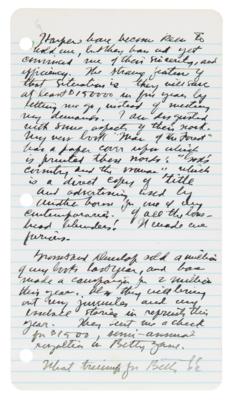 Harpers have become keen to
hold me, but they have not yet
convinced me of their sincerity and
efficiency. The strong feature of
that situation is they will save
at least $150000 in five years by
letting me go, instead of meeting
my demands. I am disgusted
with some aspects of their work.
My new book "Man of the Forest"
has a paper cover upon which
is printed these words: "God's
country and the woman" which
is a direct copy of title
and advertising used by
another house for one of my
contemporaries. Of all the bone-
head blunders! It made me
furious.
Grosset and Dunlap sold a million
of my books last year, and have
made a campaign for 2 million
this year. Also they will bring
out my juveniles and my
baseball stories in reprint this
year. They sent me a check
for $1900, semi-annual
royalties on Betty Zane.
What triumph for Betty